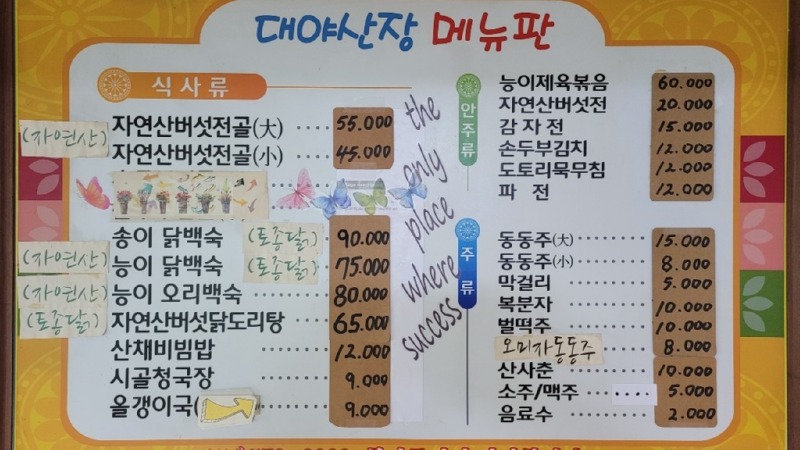 대야산장 메뉴판
식사류
(자연산) 자연산버섯전골(大) ···· 55.000
자연산버섯전골(小) ···· 45.000
송이 닭백숙 (토종닭) 90.000
(자연산) 능이 닭백숙 (토종닭) 75.000
(자연산) 능이 오리백숙 ········ 80.000
(토종닭) 자연산버섯닭도리탕 65.000
산채비빔밥 ········ 12.000
시골청국장 ········ 9.000
올갱이국( 9.000
the
only
place
where
success
안주류
능이제육볶음 60.000
자연산버섯전 20.000
감자전 15.000
손두부김치 12.000
도토리묵무침 12.000
파 전 12.000
주류
동동주(大) ········ 15.000
동동주(小) ········ 8.000
막걸리 ········ 5.000
복분자 ········ 10.000
벌떡주 ········ 10.000
오미자동동주 8.000
산사춘 ········ 10.000
소주/맥주 ···· 5.000
음료수 ········ 2.000